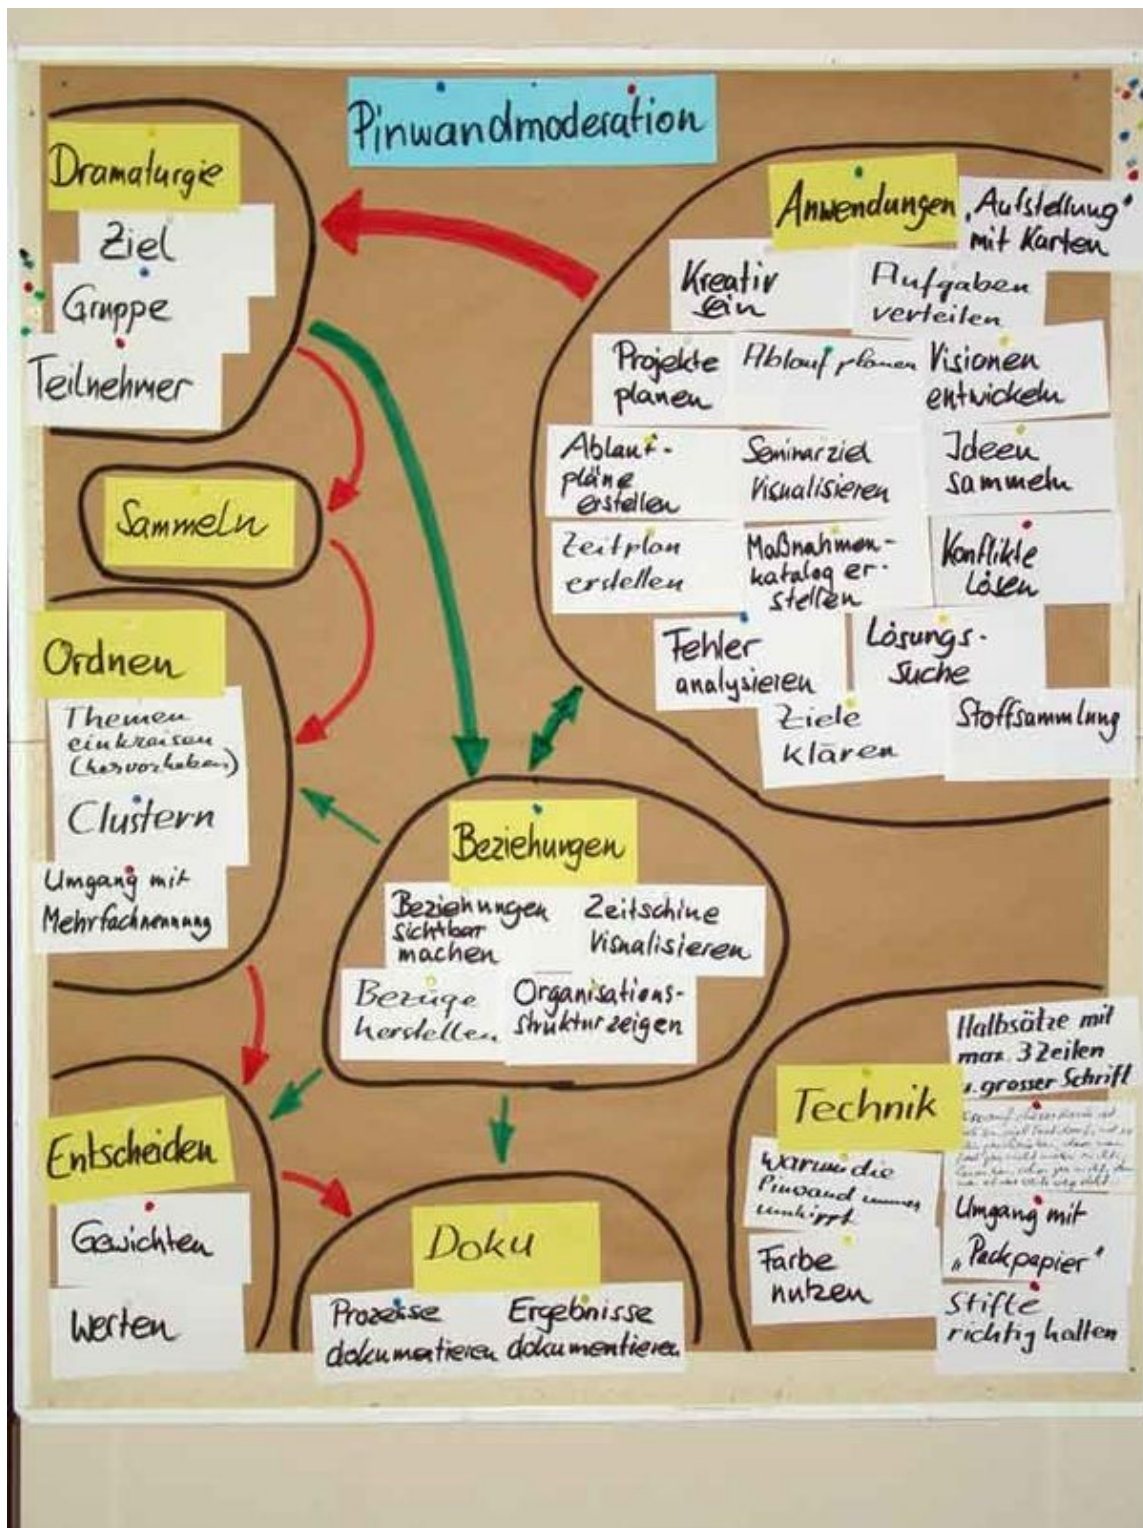 Pinwandmoderation
Dramaturgie
Ziel
Gruppe
Teilnehmer
Sammeln
Ordnen
Themen
einkreisen
(hervorheben)
Clustern
Umgang mit
Mehrfachnennung
Entscheiden
Gewichten
Werten
Anwendungen
"Aufstellung"
mit Karten
Kreativ
sein
Aufgaben
verteilen
Projekte
planen
Ablauf planen
Visionen
entwickeln
Ablauf-
pläne
erstellen
Seminarziel
Visualisieren
Ideen
sammeln
Zeitplan
erstellen
Maßnahmen-
katalog er-
stellen
Konflikte
Lösen
Fehler
analysieren
Lösungs-
suche
Ziele
klären
Stoffsammlung
Beziehungen
Beziehungen
sichtbar
machen
Zeitschine
Visualisieren
Bezüge
herstellen
Organisations-
struktur zeigen
Doku
Prozesse
dokumentieren
Ergebnisse
dokumentieren
Technik
Halbsätze mit
max. 3 Zeilen
u. grosser Schrift
warum die
Pinwand immer
umkippt
Umgang mit
"Packpapier"
Farbe
nutzen
Stifte
richtig halten